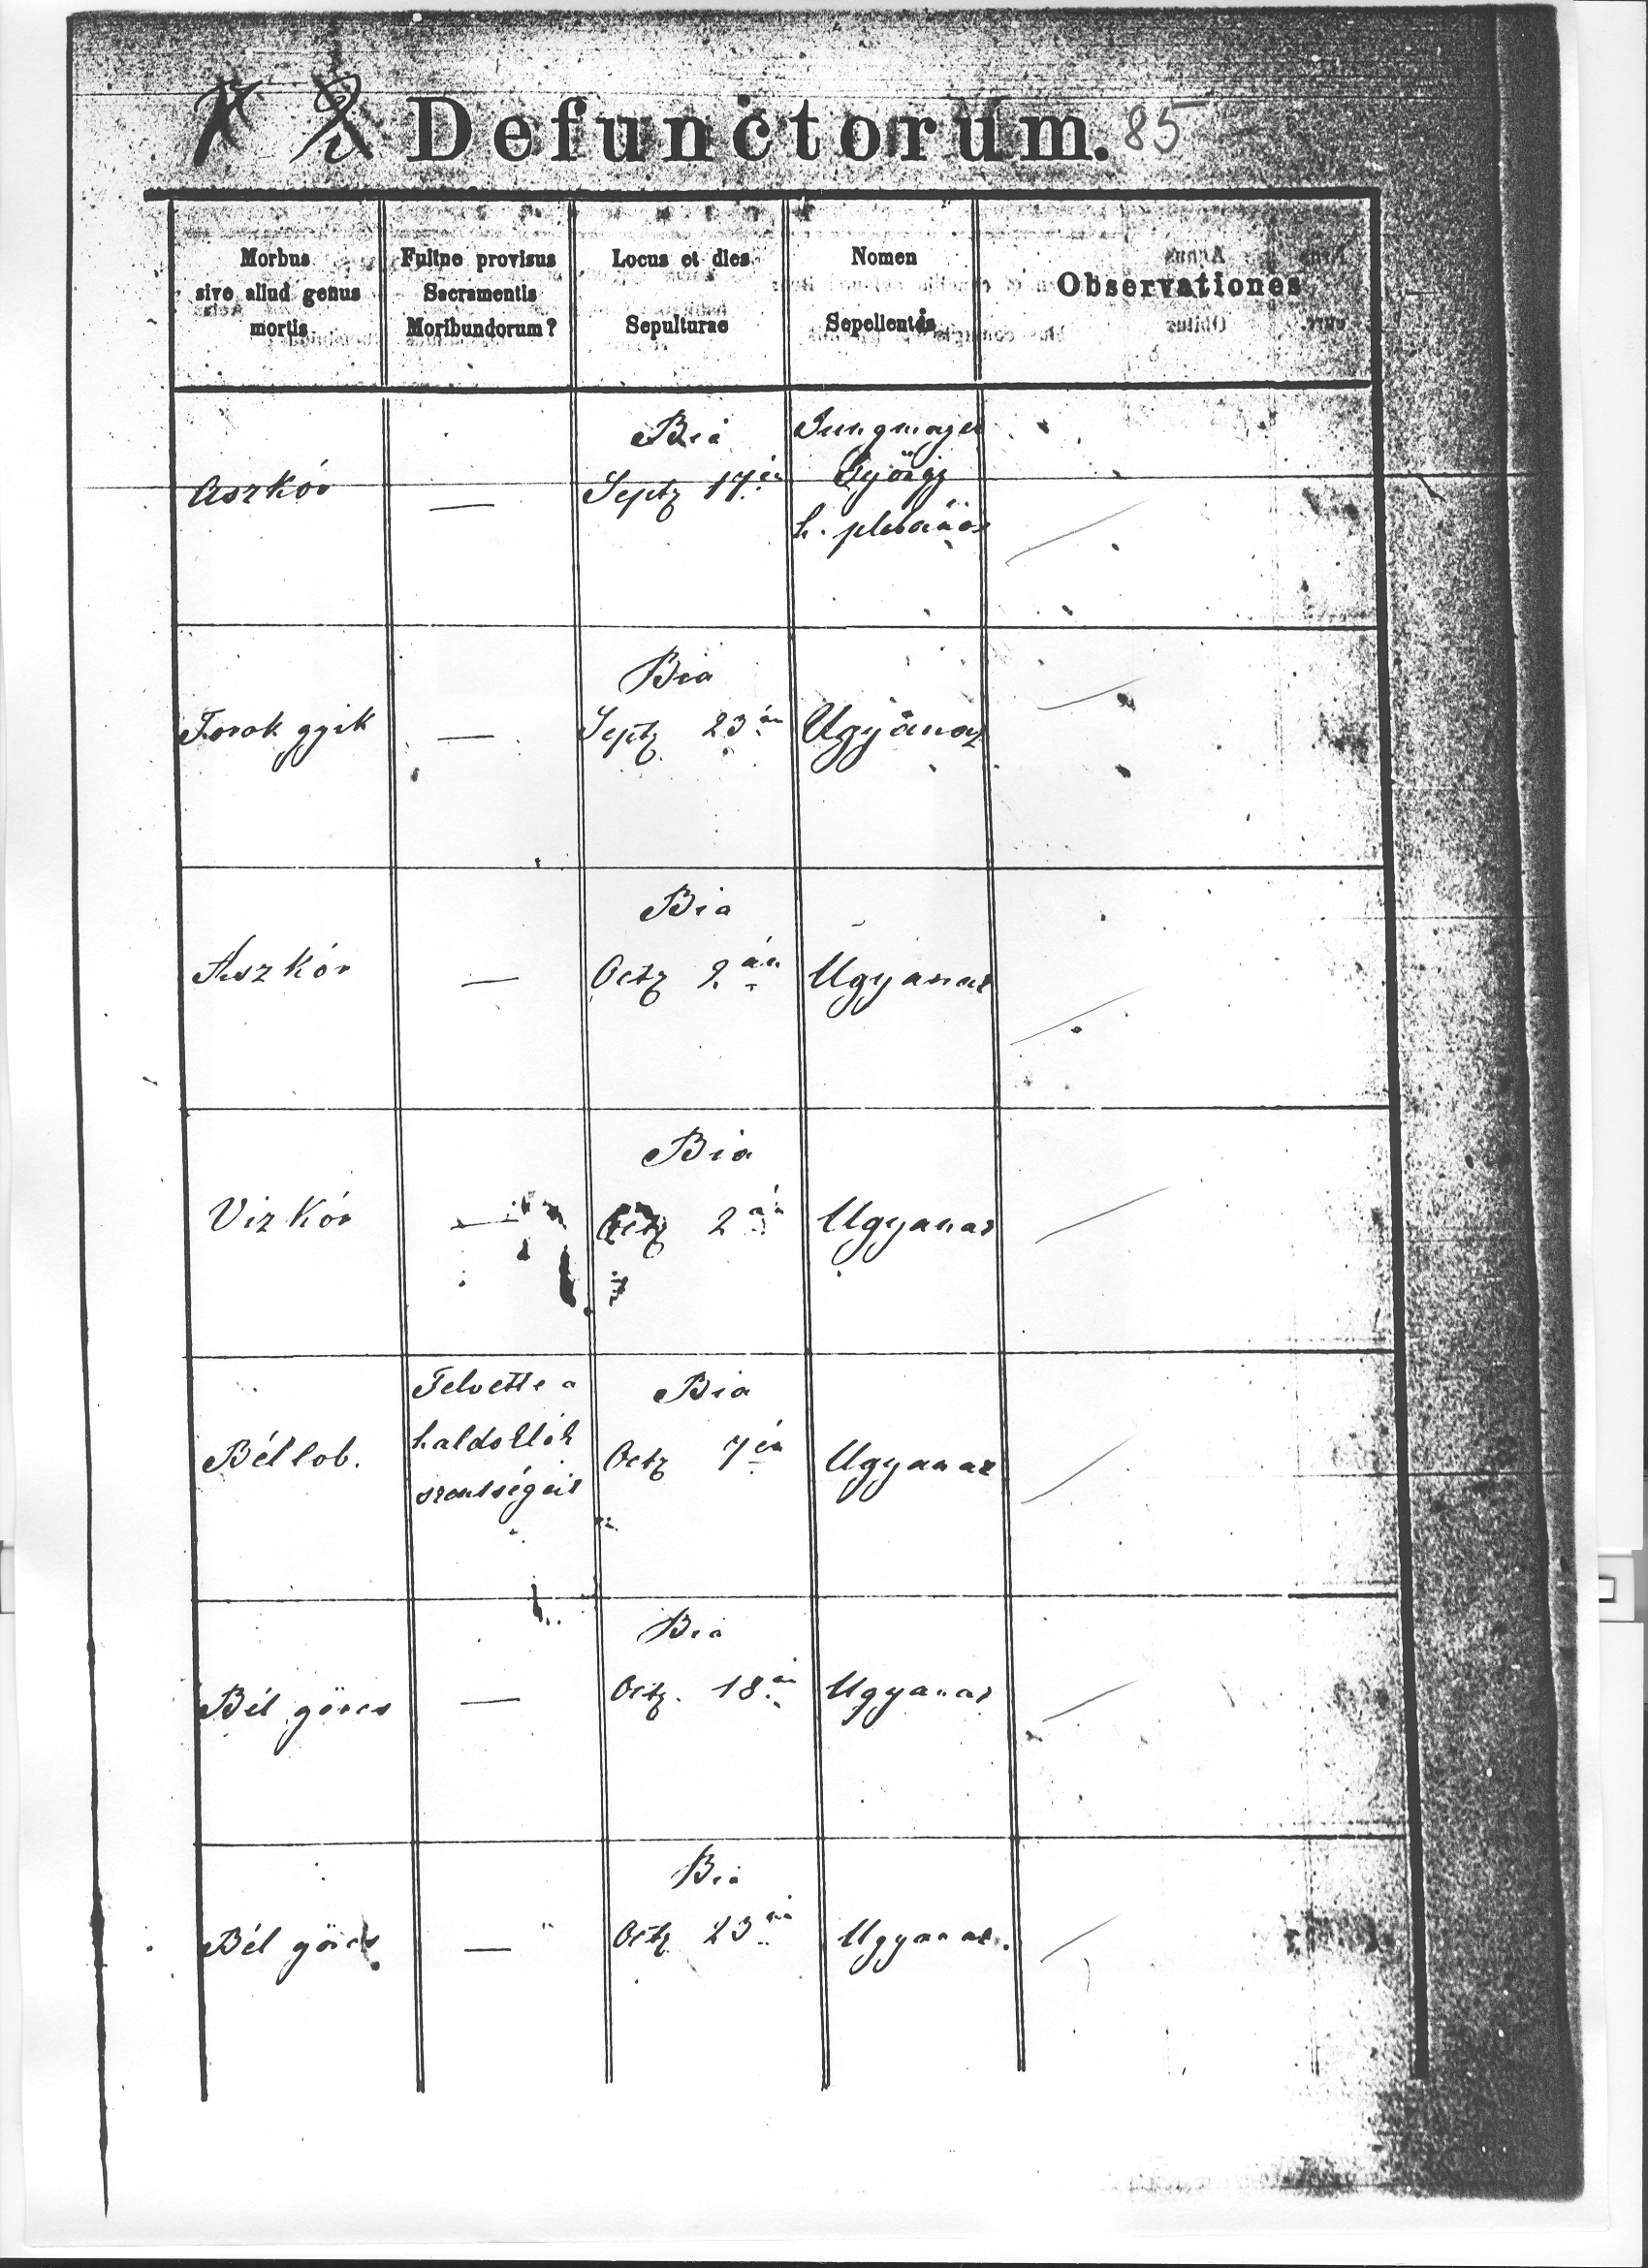 Defunctorum. 85
Morbus
sive aliud genus
mortis
Fuitne provisus
Sacramentis
Moribundorum?
Locus et dies
Sepulturae
Nomen
Sepelientis
Observationes
Aszkór
—
Bia
Septb 17én
Jungmayer
György
h. plébános
Torok gyik
—
Bia
Septb 23án
Ugyanaz
Aszkór
—
Bia
Octb 2án
Ugyanaz
Viz Kór
—
Bia
Octb 2án
Ugyanaz
Bél lob.
Felvette a
haldoklók
szentségeit
Bia
Octb 7én
Ugyanaz
Bél görcs
—
Bia
Octb. 18án
Ugyanaz
Bél görcs
—
Bia
Octb 23án
Ugyanaz.